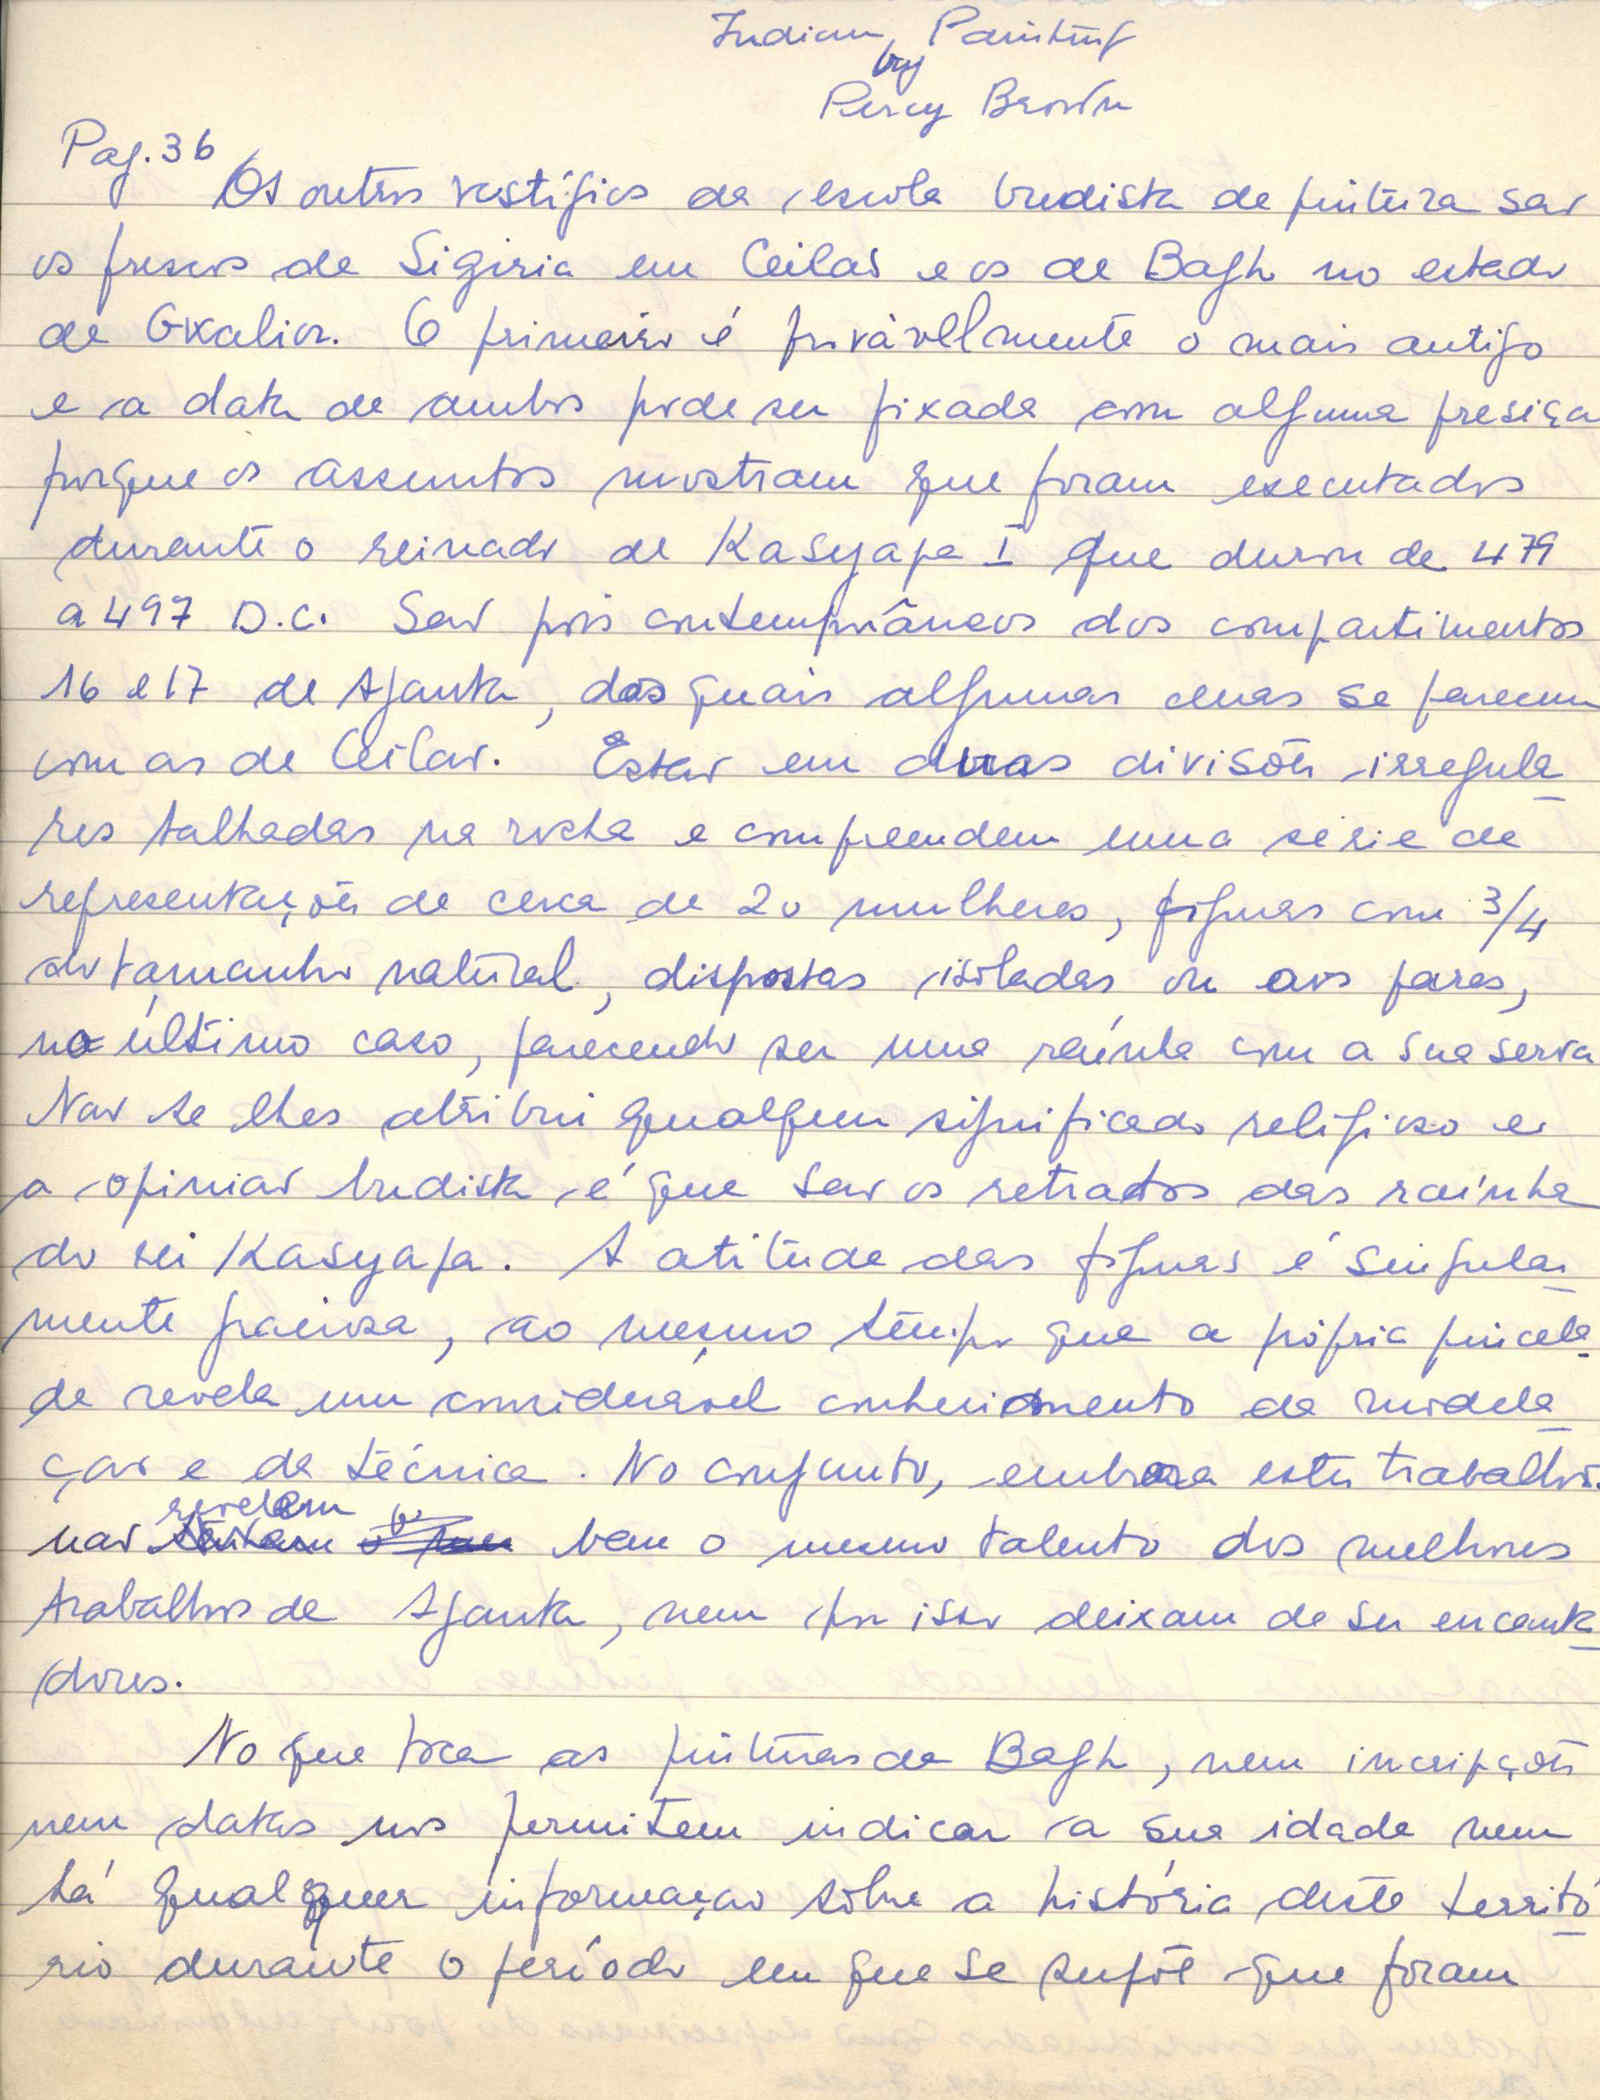 Indian Painting
by
Percy Brown
Pag. 36
Os outros vestígios da escola budista de pintura são
os frescos de Sigiria em Ceilão e os de Bagh no estado
de Gwalior. O primeiro é provàvelmente o mais antigo
e a data de ambos pode ser fixada com alguma presiçã
porque os assuntos mostram que foram executados
durante o reinado de Kasyapa I que durou de 479
a 497 D.C. São pois contemporâneos dos compartimentos
16 e 17 de Ajanta, dos quais algumas cenas se parecem
com as de Ceilão. Estão em duas divisões irregula_
res talhadas na rocha e compreendem uma série de
representações de cerca de 20 mulheres, figuras com 3/4
do tamanho natural, dispostas isoladas ou aos pares,
no último caso, parecendo ser uma raínha com a sua serva
Não se lhes atribui qualquer significado religioso e
a opinião budista é que são os retratos das raínha
do rei Kasyapa. A atitude das figuras é singular_
mente graciosa, ao mesmo tempo que a própria pincela_
da revela um considerável conhecimento da modela_
ção e da técnica. No conjunto, embora estes trabalhos
não revelem bem o mesmo talento dos melhores
trabalhos de Ajanta, nem por isso deixam de ser encanta_
dores.
No que toca as pinturas de Bagh, nem incripções
nem datas nos permitem indicar a sua idade nem
há qualquer informação sôbre a história deste territó_
rio durante o período em que se supõe que foram